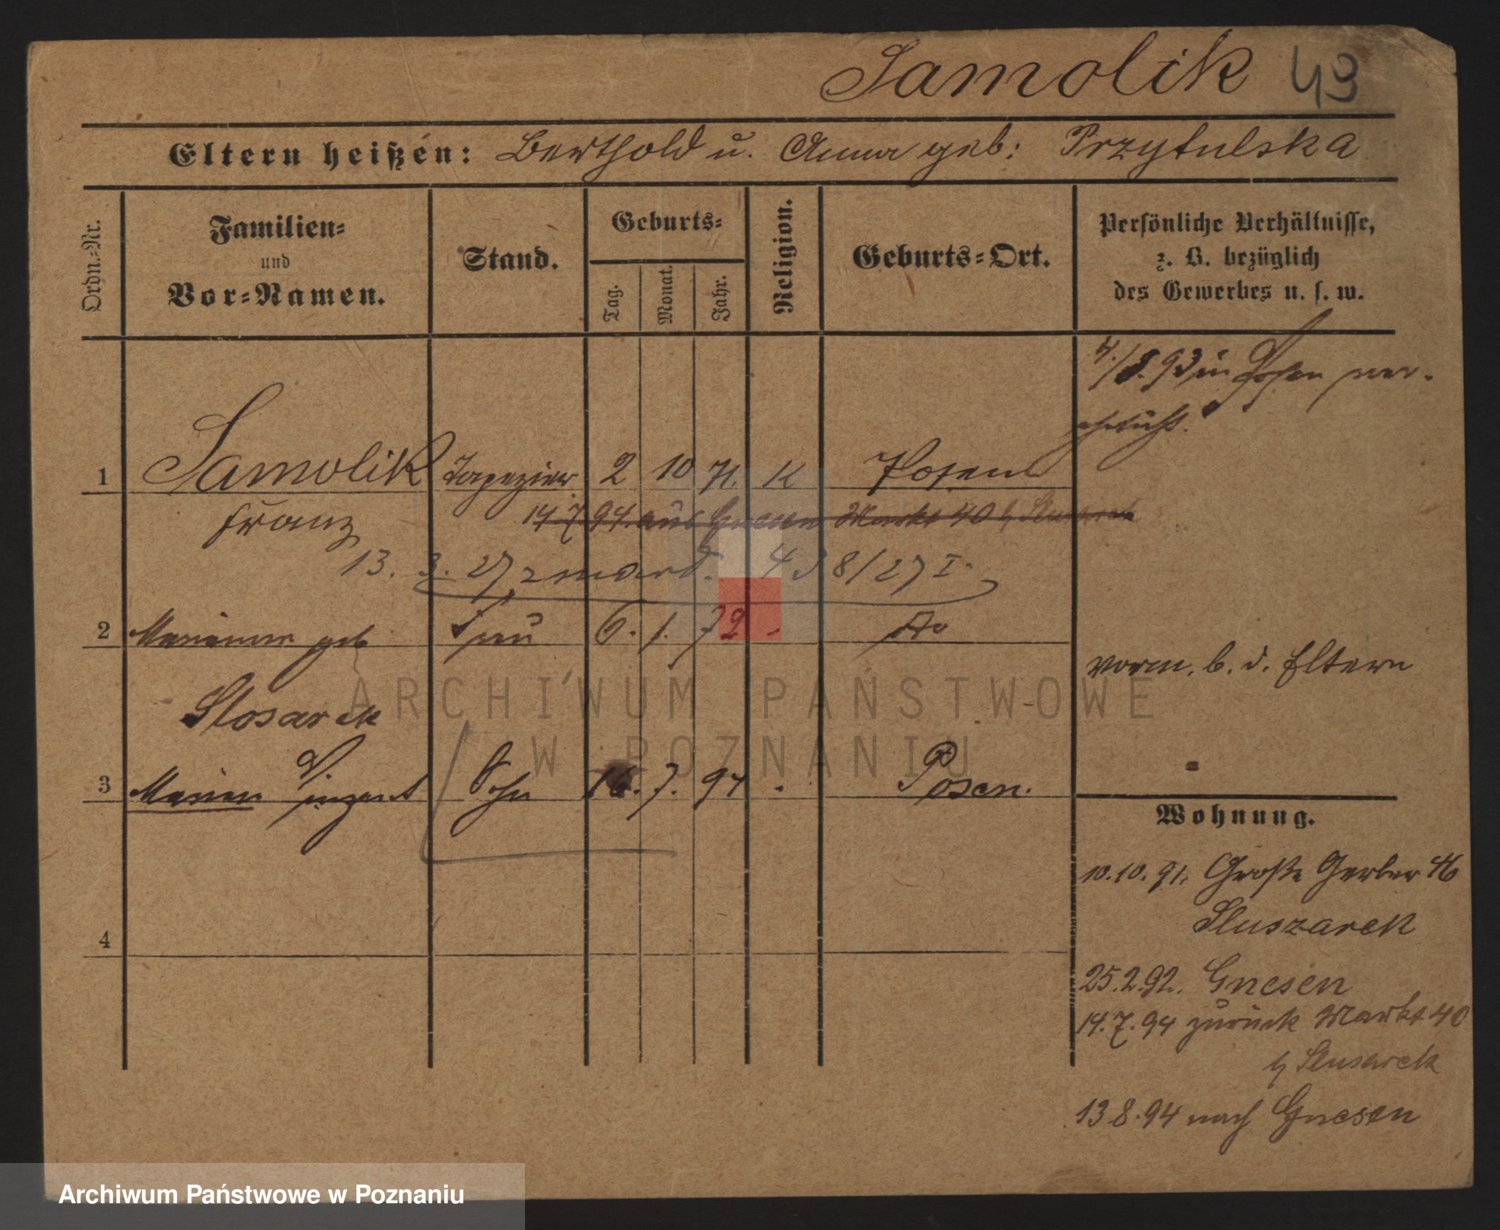 Samolik 43
Eltern heißen: Berthold u. Anna geb: Przytulska
Ordn.-Nr.
Familien-
und
Vor-Namen.
Stand.
Geburts-
Tag.
Monat.
Jahr.
Religion.
Geburts-Ort.
Persönliche Verhältnisse,
z. B. bezüglich
des Gewerbes u. s. w.
4./8. 93 in Posen ver-
ehelicht.
1 Samolik Tapezier 2 10 71. K Posen
Franz
14 7 94. aus Gnesen Markt 40 b Slusarek
13. 3. 27 438/27 I.
2 Marianna geb Frau 6. 1. 72 - do
vorm. b. d. Eltern
Slosarek
3 Marian Vinzent Sohn 16. 7. 94 - Posen.
4
Wohnung.
10.10.91. Große Gerber 46
Sluszarek
25.2.92. Gnesen
14.7.94 zurück Markt 40
b Slusarek
13.8.94 nach Gnesen
ARCHIWUM PAŃSTWOWE
W POZNANIU
Archiwum Państwowe w Poznaniu